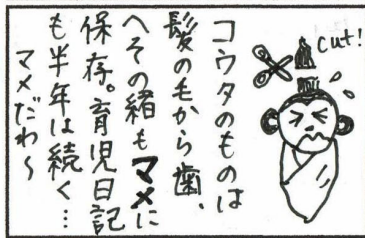 cut!
コウタのものは
髪の毛から歯、
へその緒もマメに
保存。育児日記
も半年は続く…
マメだわ〜